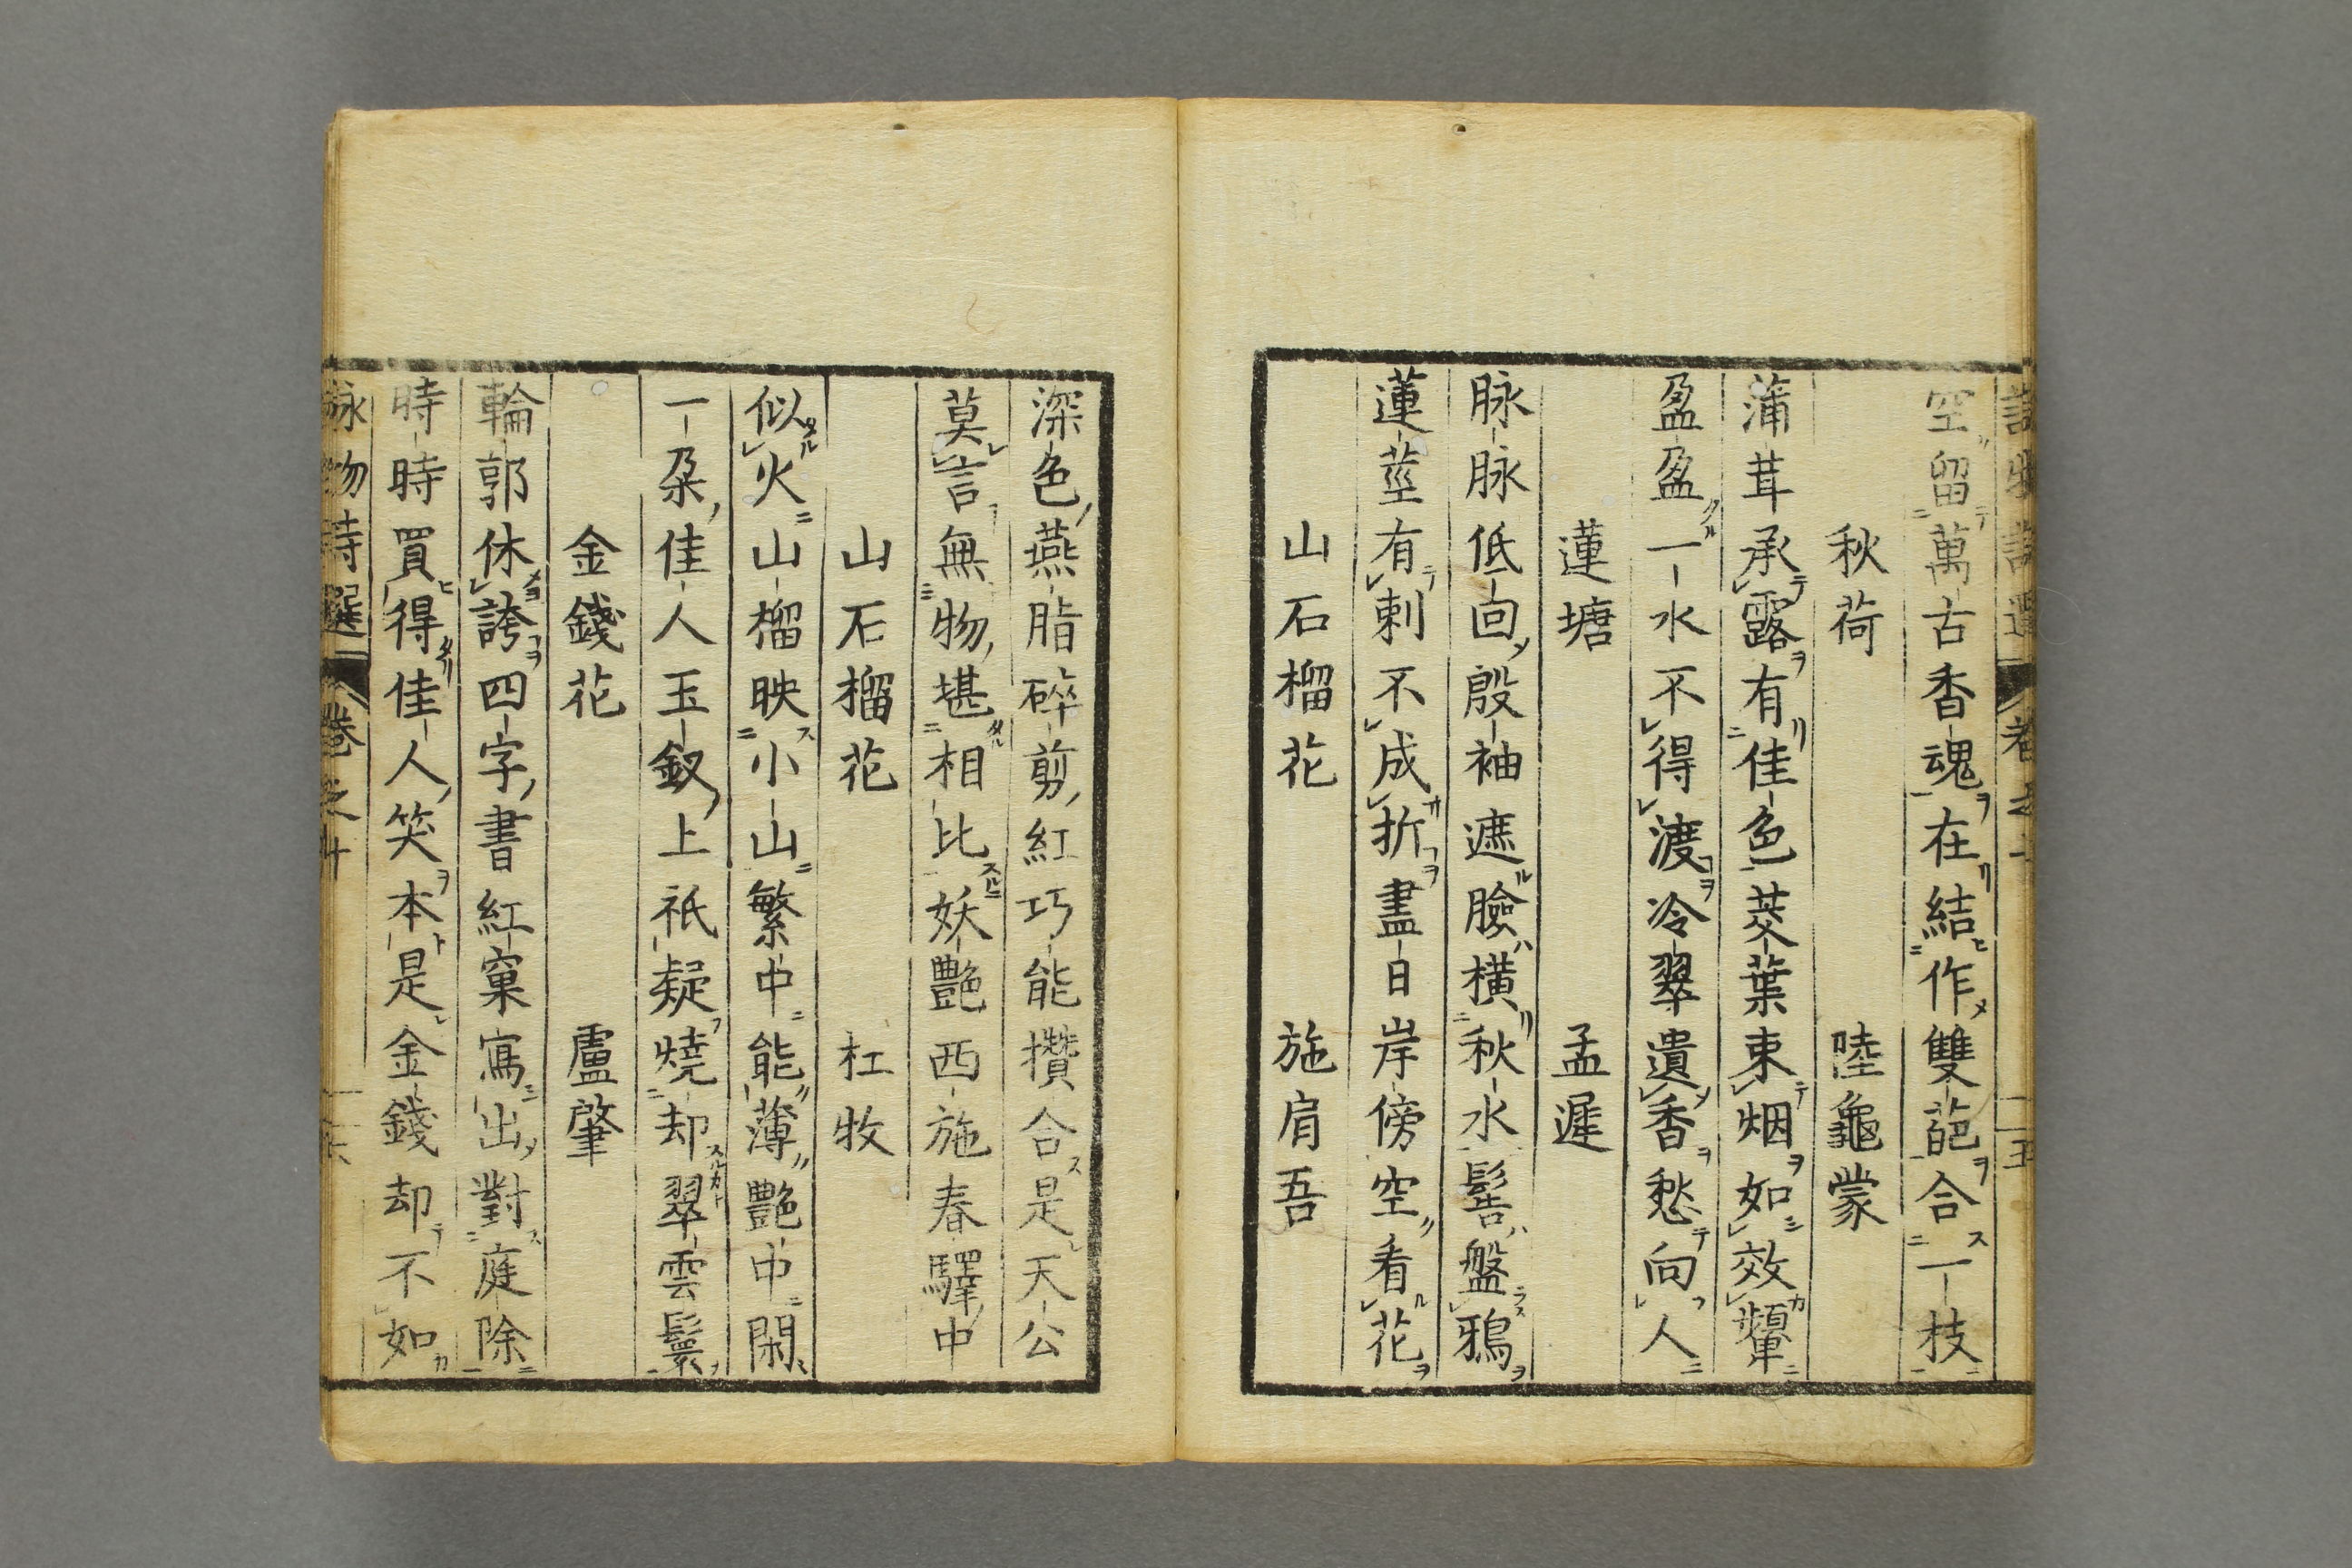 空留萬古香魂在結作雙葩合一枝
秋荷 陸龜蒙
蒲茸承露有佳色茭葉束烟如效顰
盈盈一水不得渡冷翠遺香愁向人
蓮塘 孟遲
脉脉低回殷袖遮臉橫秋水髻盤鴉
蓮莖有刺不成折盡日岸傍空看花
山石榴花 施肩吾
深色燕脂碎剪紅巧能攅合是天公
莫言無物堪相比妖艶西施春驛中
山石榴花 杜牧
似火山榴映小山繁中能薄艶中閑
一朶佳人玉釵上祇疑燒却翠雲鬟
金錢花 盧肇
輪郭休誇四字書紅窠寫出對庭除
時時買得佳人笑本是金錢却不如
詠物詩選 卷之十